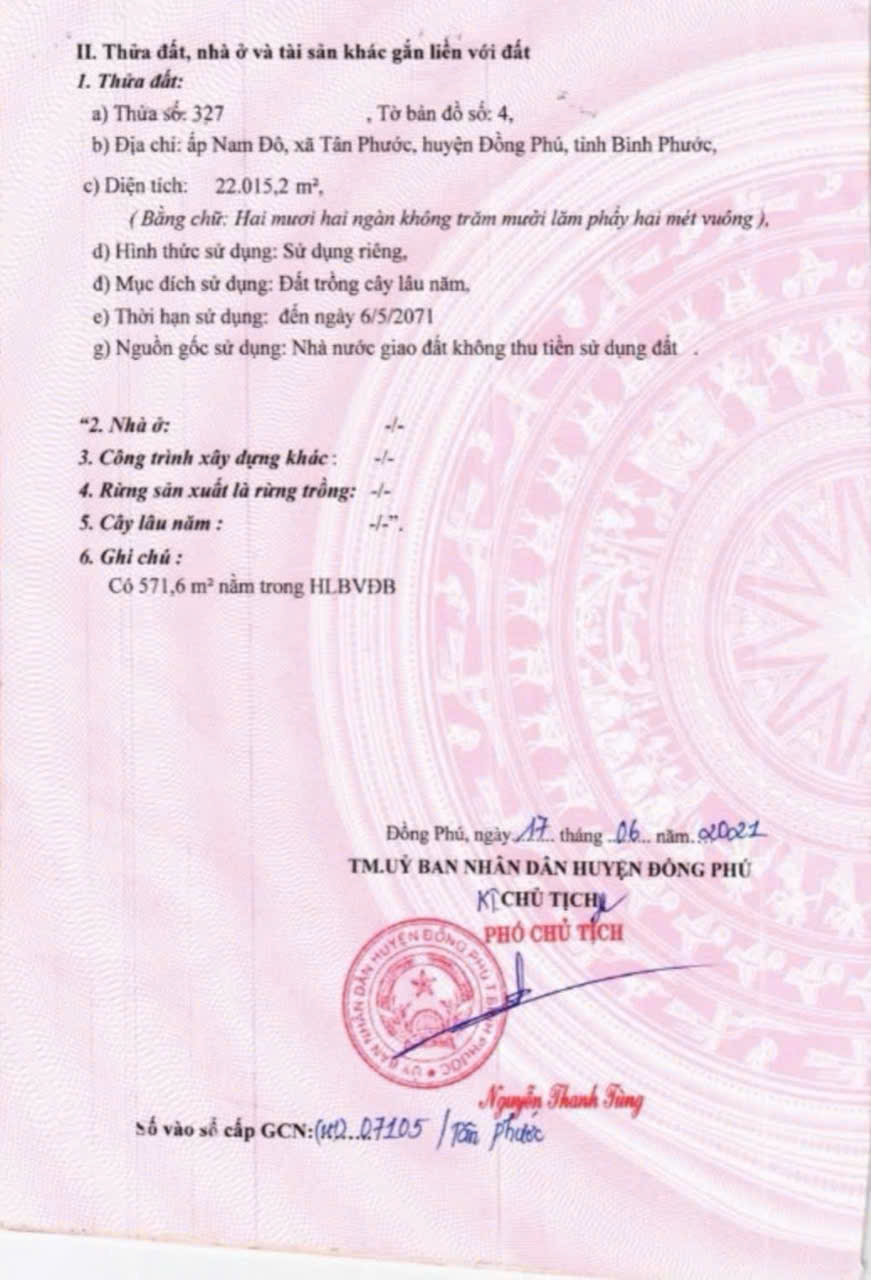 II. Thửa đất, nhà ở và tài sản khác gắn liền với đất
1. Thửa đất:
a) Thửa số: 327 , Tờ bản đồ số: 4,
b) Địa chỉ: ấp Nam Đô, xã Tân Phước, huyện Đồng Phú, tỉnh Bình Phước,
c) Diện tích: 22.015,2 m²,
( Bằng chữ: Hai mươi hai ngàn không trăm mười lăm phẩy hai mét vuông ),
d) Hình thức sử dụng: Sử dụng riêng,
đ) Mục đích sử dụng: Đất trồng cây lâu năm,
e) Thời hạn sử dụng: đến ngày 6/5/2071
g) Nguồn gốc sử dụng: Nhà nước giao đất không thu tiền sử dụng đất .
“2. Nhà ở: -/-
3. Công trình xây dựng khác : -/-
4. Rừng sản xuất là rừng trồng: -/-
5. Cây lâu năm : -/-”.
6. Ghi chú :
Có 571,6 m² nằm trong HLBVĐB
Đồng Phú, ngày 17 tháng 06 năm 2021
TM.UỶ BAN NHÂN DÂN HUYỆN ĐỒNG PHÚ
KT CHỦ TỊCH
PHÓ CHỦ TỊCH
ỦY BAN NHÂN DÂN HUYỆN ĐỒNG PHÚ T. BÌNH PHƯỚC
Nguyễn Thanh Tùng
Số vào sổ cấp GCN: 07105 / Tân Phước